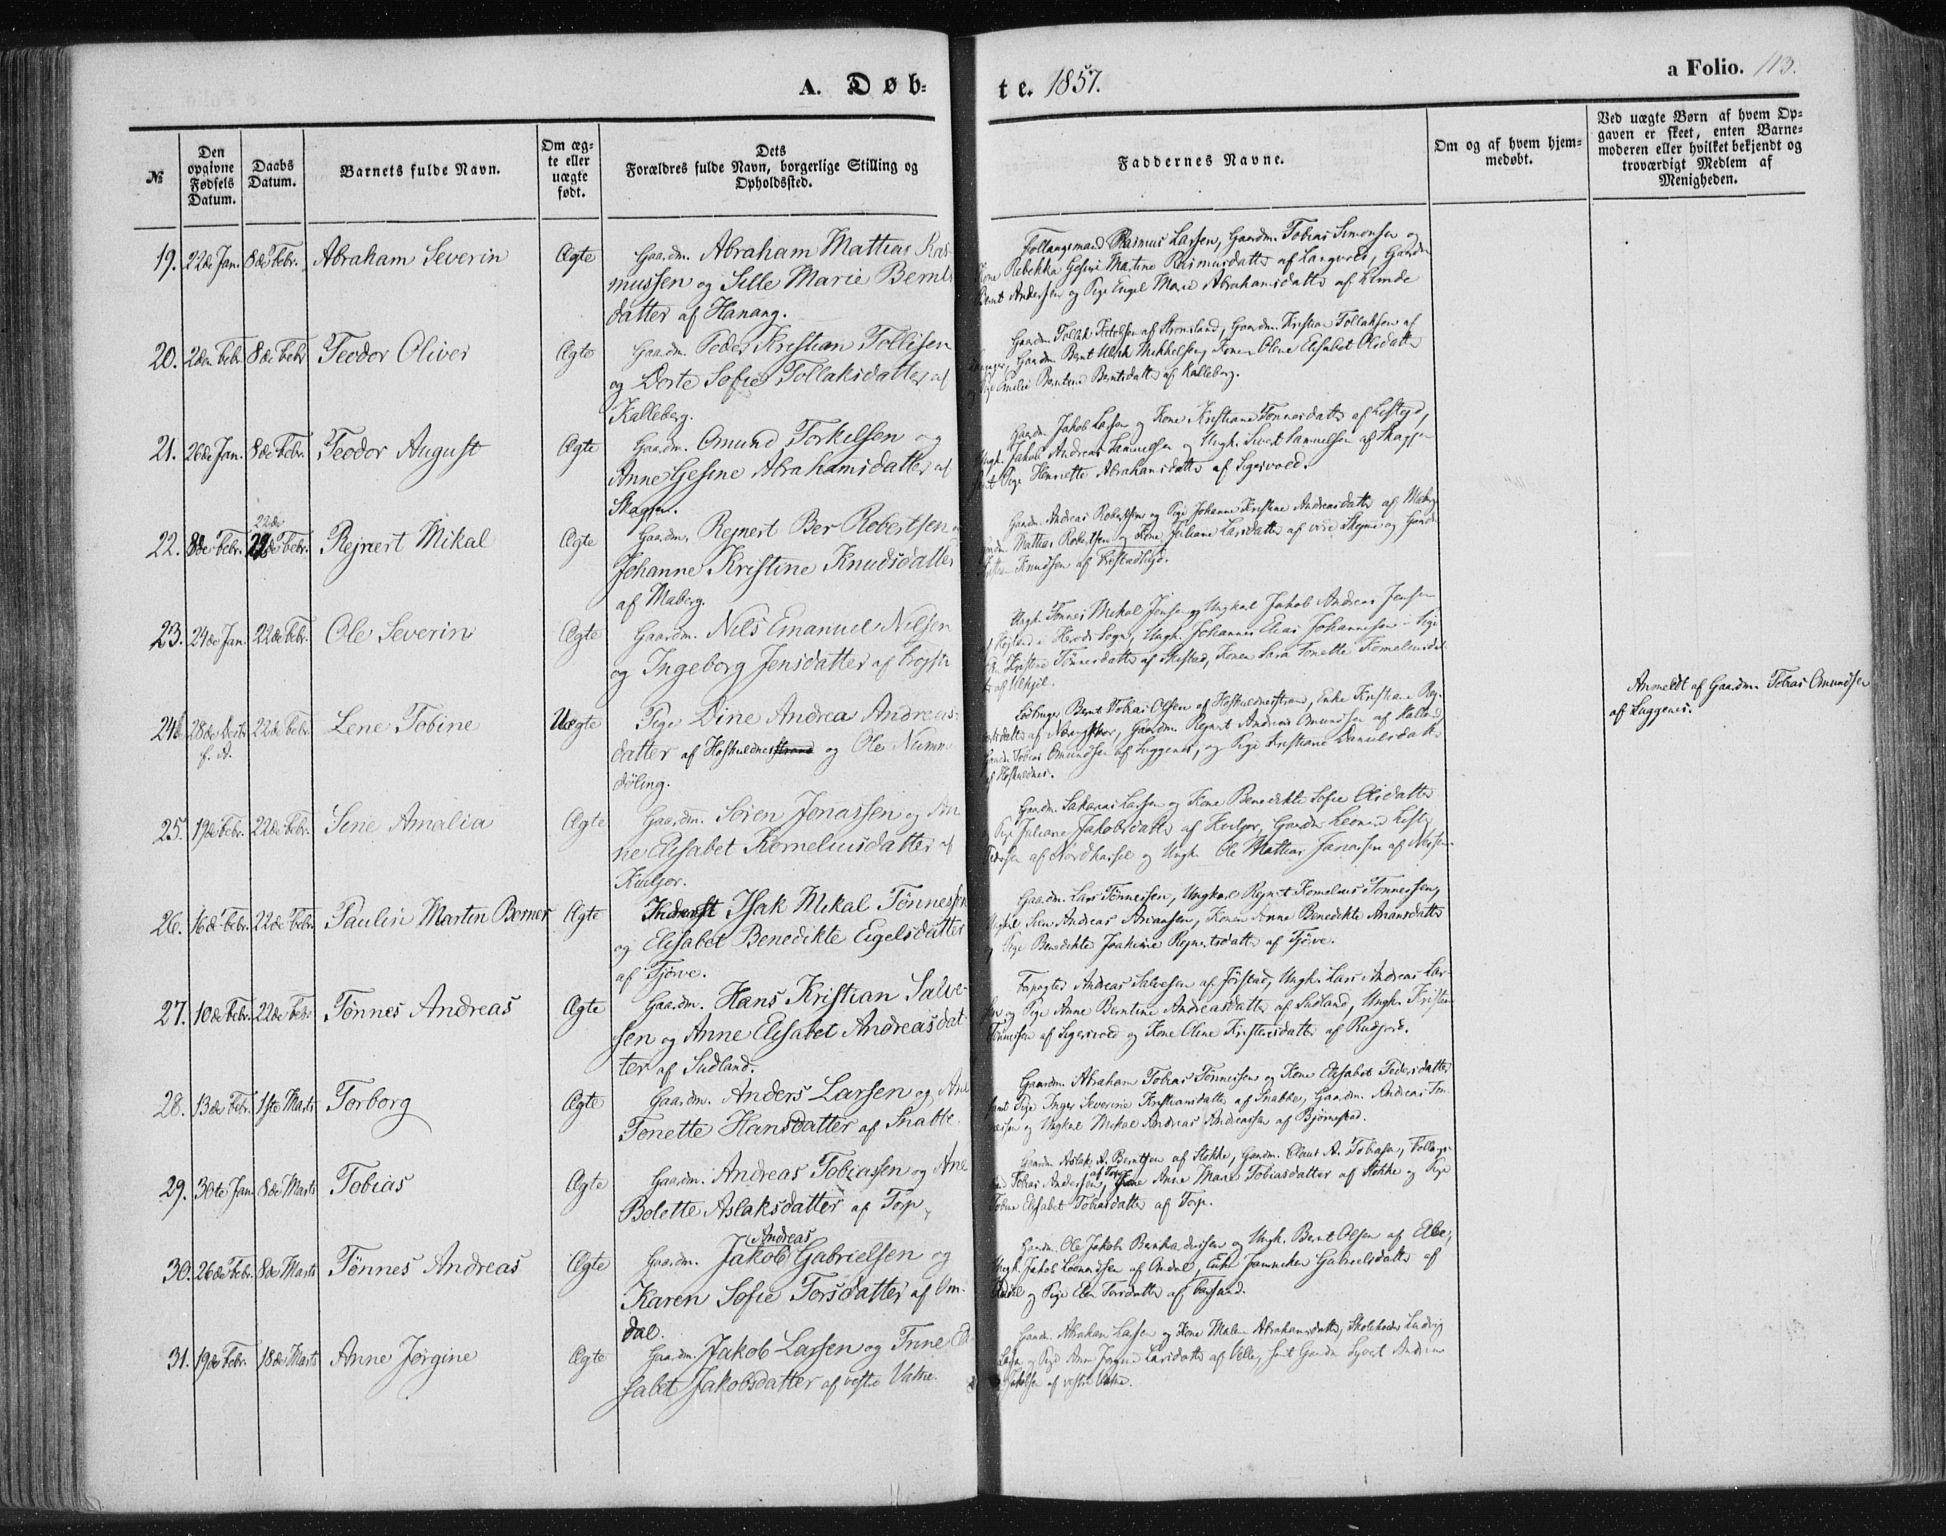 A. Døb=
te. 1857.
a Folio. 113.
№
Den opgivne Fødsels Datum.
Daabs Datum.
Barnets fulde Navn.
Om æg-te eller uægte født.
Dets Forældres fulde Navn, borgerlige Stilling og Opholdssted.
Faddernes Navne.
Om og af hvem hjem-medøbt.
Ved uægte Børn af hvem Op-gaven er skeet, enten Barne-moderen eller hvilket bekjendt og troværdigt Medlem af Menigheden.
19. 22de Jan. 8de Febr. Abraham Severin Ægte Gaardm. Abraham Mattias Ras-
mussen og Sille Marie Bernts
datter af Hanang.
Follaugsmand Rasmus Larsen, Gaardm. Tobias Simonsen og
Kone Rebekka Gesine Martine Rasmusdatter af Langvold, Gaardm.
Bernt Andersen og Pige Engel Marie Abrahamsdatter af
20. 2den Febr. 8de Febr. Teodor Oliver Ægte Gaardm. Peder Kristian Tollisen
og Dorte Sofie Tollaksdatter af
Kalleberg.
Gaardm. Tollak Ketelsen af, Gaardm. Kristian Tollaksen af
Gaardm. Bernt Mikkelsen, Konen Oline Elisabet Olsdatter
og Pige Emilie Berntine Berntsdatter af Kalleberg.
21. 26de Jan. 8de Febr. Teodor August Ægte Gaardm. Omund Torkelsen og
Anne Gesine Abrahamsdatter af
Skagen.
Gaardm. Jakob Larsen og Kone Kristiane Tønnesdatter af
Ungk. Jakob Andreas Samuelsen og Ungk. Sivert Samuelsen af Skagen
samt Pige Henriette Abrahamsdatter af Sigersvold.
22. 8de Febr. 22de 22de Febr. Rejnert Mikal Ægte Gaardm. Rejnert Ber Robertsen og
Johanne Kristine Knudsdatter
af Maberg.
Gaardm. Andreas Robertsen og Pige Johanne Kristine Andreasdatter af Maberg
Gaardm. Mattias Robertsen og Kone Juliane Larsdatter af og Gaardm.
Knudsen af
23. 24de Jan. 22de Febr. Ole Severin Ægte Gaardm. Nils Emanuel Nilsen
og Ingeborg Jensdatter af
Ungk. Tønnes Mikal Jensen, Ungkal Jakob Andreas Jensen
i Herads Sogn, Ungk. Johannes Elias Johannesen – Pige
Kristine Tønnesdatter af, Konen Sara Tonette Kornelius dat
ter af
24. 28de Decbr f. A. 22de Febr. Lene Tobine Uægte Pige Dine Andrea Andreas-
datter af Hoskuldnesstrand og Ole Numme-
døling.
Bernt Tobias Olsen af Hoskuldnesstrand, Enke Kristiane Rej-
nertsdatter af, Gaardm. Rejnert Andreas Omundsen af
Gaardm. Tobias Omundsen af Luggenes, og Pige Kristiane Danielsdatter
af Hoskuldnes.
Anmeldt af Gaardm. Tobias Omundsen
af Luggenes.
25. 19de Febr. 22de Febr. Sine Amalia Ægte Gaardm. Søren Jonassen og An-
ne Elisabet Korneliusdatter af
Kviljor.
Gaardm. Sakarias Larsen og Kone Benedikte Sofie Olsdatter
Pige Juliane Jakobsdatter af Kviljor, Gaardm.
Pedersen af Nordhassel og Ungk. Ole Mattias Jonassen af
26. 16de Febr. 22de Febr. Paulin Martin Berner Ægte Inderst Isak Mikal Tønnessen
og Elisabet Benedikte Eigelsdatter
af Tjørve.
Gaardm. Lars Tønnessen, Ungkarl Rejnert Kornelius Tønnessen,
Ungkarl Sven Andreas, Konen Anne Benedikte
og Pige Benedikte Joakime Rejnertsdatter af Tjørve.
27. 10de Febr. 22de Febr. Tønnes Andreas Ægte Gaardm. Hans Kristian Salve-
sen og Anne Elisabet Andreasdat-
ter af Sudland.
Forpagter Andreas Salvesen af Jørstad, Ungk. Lars Andreas Lar-
sen og Pige Anne Berntine Andreasdatter af Sudland, Ungk. Kristen
Tønnessen af Sigersvold og Kone Oline Kristensdatter af Rudjord.
28. 13de Febr. 1ste Marts Torborg Ægte Gaardm. Anders Larsen og Ane
Tonette Hansdatter af Snabbe.
Gaardm. Abraham Tobias Tønnessen og Kone Elisabet Pedersdatter
samt Pige Inger Severine Kristiansdatter af Snabbe, Gaardm. Andreas Tøn-
nessen og Ungkal Mikal Andreas Andreassen af Bjørnestad.
29. 30te Jan 8de Marts Tobias Ægte Gaardm. Andreas Tobiassen og Ane
Bolette Aslaksdatter af Torp.
Gaardm. Aslak A. Berntsen af Stokke, Gaardm. Claus A. Tobiasen, Follaugs-
mand Tobias Andersen af Torp, Kone Anne Marie Tobiasdatter af Stokke og Pige
Tobine Elisabet Tobiasdatter af Torp.
30. 26de Febr. 8de Marts Tønnes Andreas Ægte Gaardm. Jakob Andreas Gabrielsen og
Karen Sofie Torsdatter af Om-
dal.
Gaardm. Ole Jakob Bernhardsen og Ungk. Bernt Olsen af Elle,
Ungk. Jakob af Omdal, Enke Janneken Gabrielsdatter af
Omdal og Pige Elen Torsdatter af
31. 19de Febr. 18de Marts Anne Jørgine Ægte Gaardm. Jakob Larsen og Trine E-
sabet Jakobsdatter af vestre Vatne.
Gaardm. Abraham Larsen og Kone Malene Abrahamsdatter, Skoleholder Ludvig
Larsen og Pige Anne Jørgine Larsdatter af Velle, samt Gaardm. Syvert Andreas
Jakobsen af vestre Vatne.